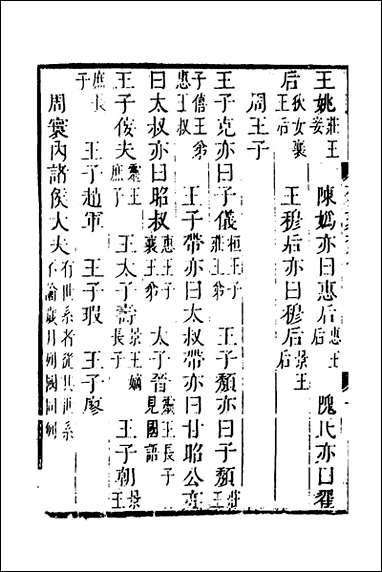 王姚莊王妾　陳嬀亦曰惠后惠王后　隗氏亦曰翟
后狄女襄王后　王穆后亦曰穆后景王后
周王子
王子克亦曰子儀桓王子　王子頹亦曰子頹莊
子僖王弟惠王叔　王子帶亦曰太叔帶亦曰甘昭公亦
曰太叔亦曰昭叔惠王子襄王弟　太子晉靈王長子見國語
王子佞夫靈王庶子　王太子壽景王嫡長子　王子朝景王
庶長子　王子趙車　王子瑕　王子廖
周寰內諸侯大夫有世系者從其世系不論歲月列國同例